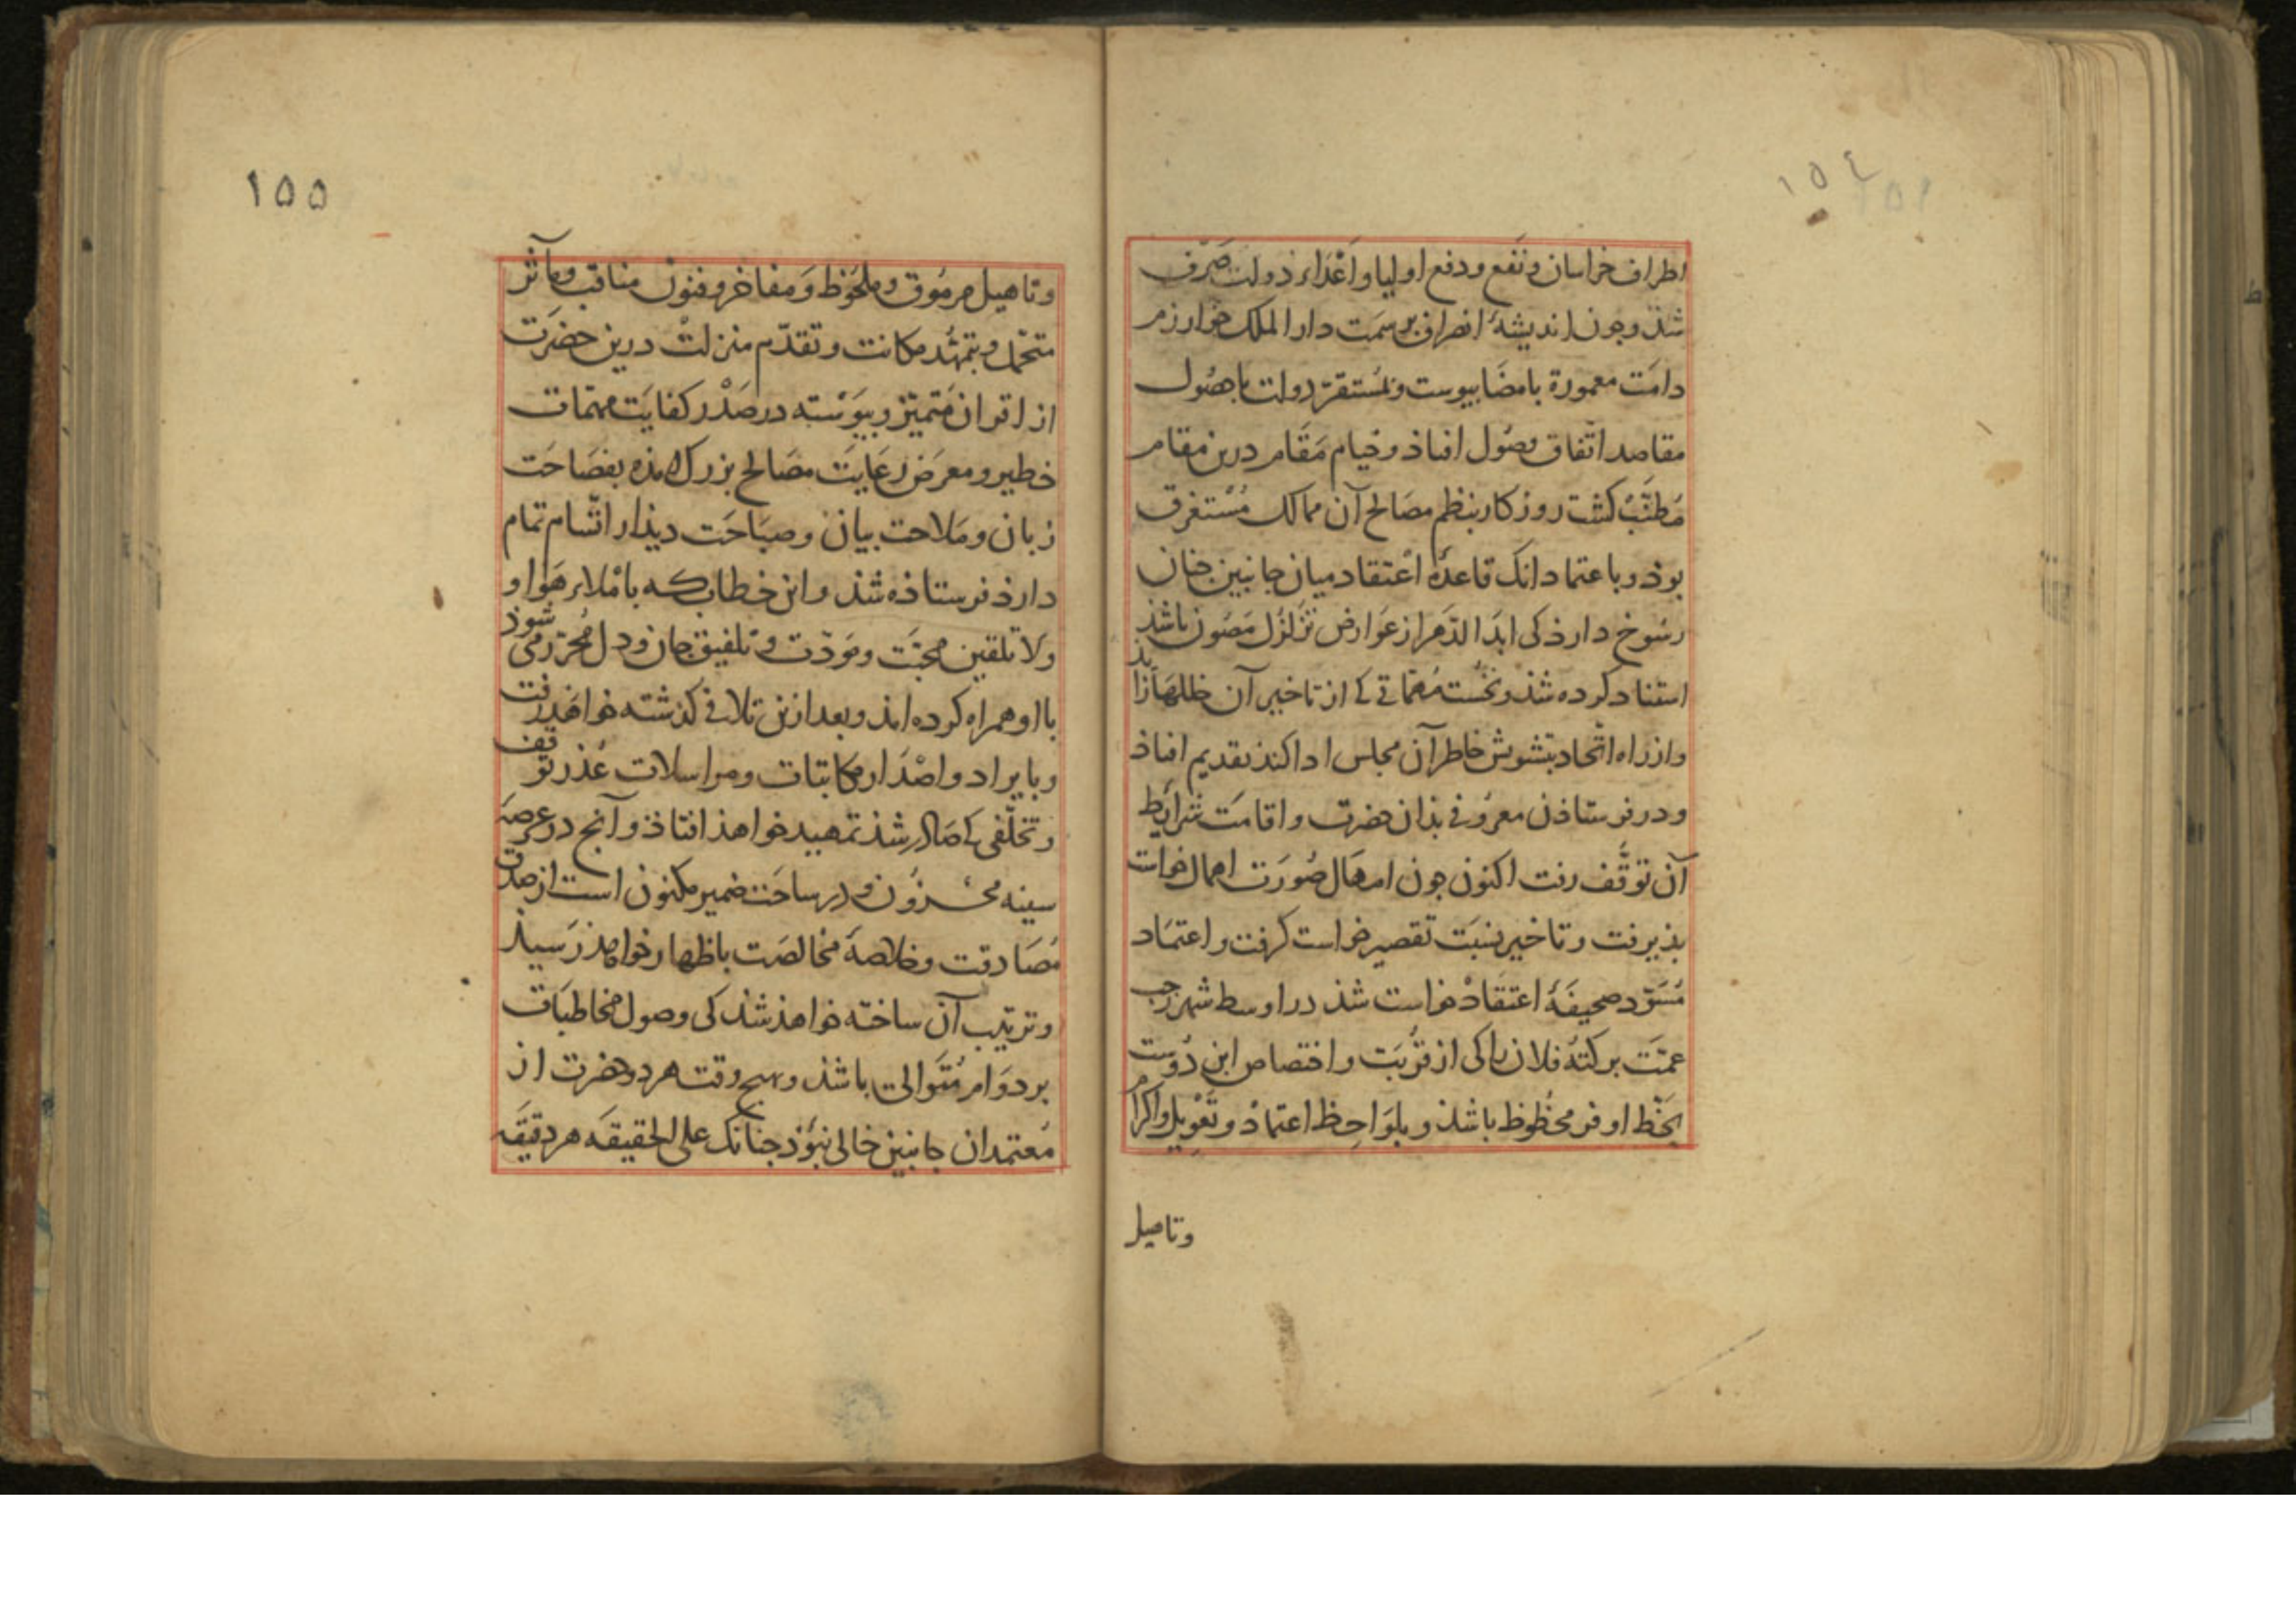 ١٥٤
اطراف خراسان و نفع و دفع اولیا و اَعْدَاء دولت صَرف
شذ و چون اندیشهٔ انصراف بر سمَت دار الملک خوارزم
دامَت معمورة بامضَا پیوست و بمُستقرّ دولت با حصُول
مقاصد اتّفاق وصُول افتاذ و خیام مَقَام درین مقام
مُطنَّبْ کشت روزکار بنظم مصَالح آن ممالک مُسْتغرق
بوذ و باعتماد انک قاعدهٔ اعْتقاد میان جانبین جنان
رسُوخ دارذ کی ابدَ الدّهر از عَوارض تزَلزُل مَصُون باشذ
استناد کرده شذ و نخُست مُهمّاتی کی از تاخیر آن خللها زایذ
و از راه اتّحاد بتشویش خاطر آن مجلس ادا کنذ تقدیم افتاذ
و در فرستاذن معرُوفی بذان حضرت و اقامَت شرایط
آن توقّف رفت اکنون جون امهَال صُورَت اهمال خواست
پذیرفت و تاخیر نسبَت تقصیر خواست کرفت و اعتمَاد
مُسَوّد صحیفَهٔ اعتقَادْ خواست شذ در اوسط شهر رجب
عمّتَ برکتهُ فلان را کی از قرُبَت و اختصاص این دُوست
بحَظّ اوفر محظُوظ باشذ و بلوَاحِظ اعتمَاذ و تَعْوِیل و اکرام
وتاهیل
١٥٥
و تاهیل مرمُوق و ملحُوظ وَ مفاخر و فنوُن مناقب و مآثر
متحمّل و بتمهّد مکانت و تقدّم منزلتْ درین حضرَت
از اقران مُتمیّز و پیوَسْته در صَدْر کفایَت مهمّات
خطیر و معرَض رعَایَت مصَالح بزرک آمذه بفصَاحَت
زبان و مَلاحت بیان و صبَاحَت دیذار اتّسام تمام
دارذ فرستاذه شذ و این خطاب که باملاء هَوا و
وَلا تلقین محبّت و مَوَدّت و تلفیق جان و دل مُحرّر می شوذ
با او همراه کرده امذ و بعد ازین تلافی کذشته خواهَذ رفت
و بایراد و اصْدَار مکاتبات و مراسلات عُذر توقف
و تخلّفی کی صَادر شذ تمهید خواهذ افتاذ و آنج در عرصَه
سینه مخزوُن و در ساحَت ضمیر مکنون است از صدق
مُصَادقت و خلاصهَٔ مخالصَت باظهار خواهذ رَسیذ
و ترتیب آن ساخته خواهذ شذ کی وصول مخاطبَات
بر دوَام مُتَوالی باشذ و هیج وقت هر دو حضرت از
مُعتمدان جانبین خالی نبوُذ جنانک علی الحقیقه هر دقیقه